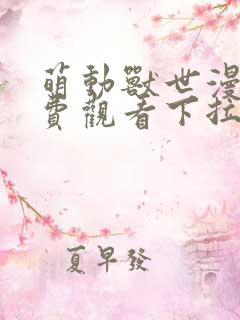 萌動獸世漫
費觀看下拉
夏早發